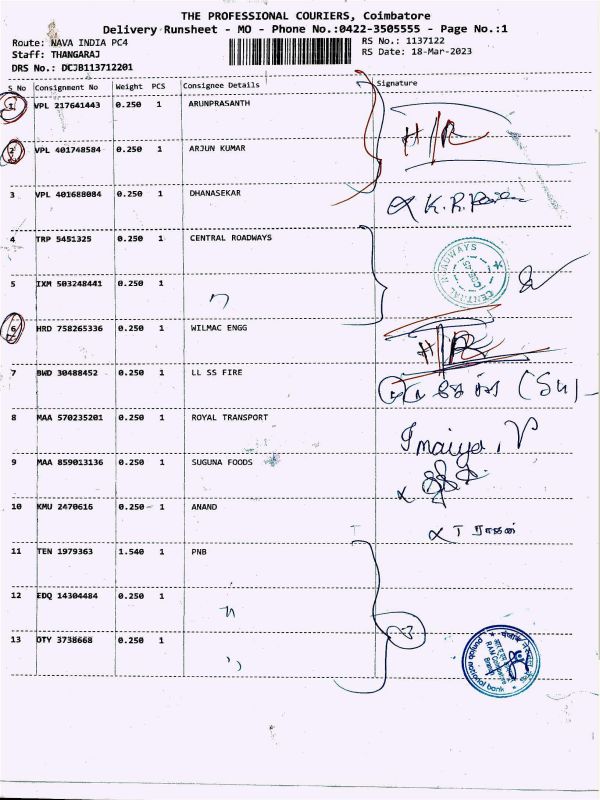 THE PROFESSIONAL COURIERS, Coimbatore
Delivery Runsheet - MO - Phone No.:0422-3505555 - Page No.:1
Route: NAVA INDIA PC4
Staff: THANGARAJ
DRS No.: DCJB113712201
RS No.: 1137122
RS Date: 18-Mar-2023
S No Consignment No Weight PCS Consignee Details Signature
1 VPL 217641443 0.250 1 ARUNPRASANTH
2 VPL 401748584 0.250 1 ARJUN KUMAR
H/R
3 VPL 401688084 0.250 1 DHANASEKAR
K.R.
4 TRP 5451325 0.250 1 CENTRAL ROADWAYS
CENTRAL ROADWAYS
5 IXM 503248441 0.250 1 "
6 HRD 758265336 0.250 1 WILMAC ENGG
H/R
7 BWD 30488452 0.250 1 LL SS FIRE
8 MAA 570235201 0.250 1 ROYAL TRANSPORT
Imaiya. V
9 MAA 859013136 0.250 1 SUGUNA FOODS
10 KMU 2470616 0.250 1 ANAND
T ராஜன்
11 TEN 1979363 1.540 1 PNB
12 EDQ 14304484 0.250 1 "
13 OTY 3738668 0.250 1 "